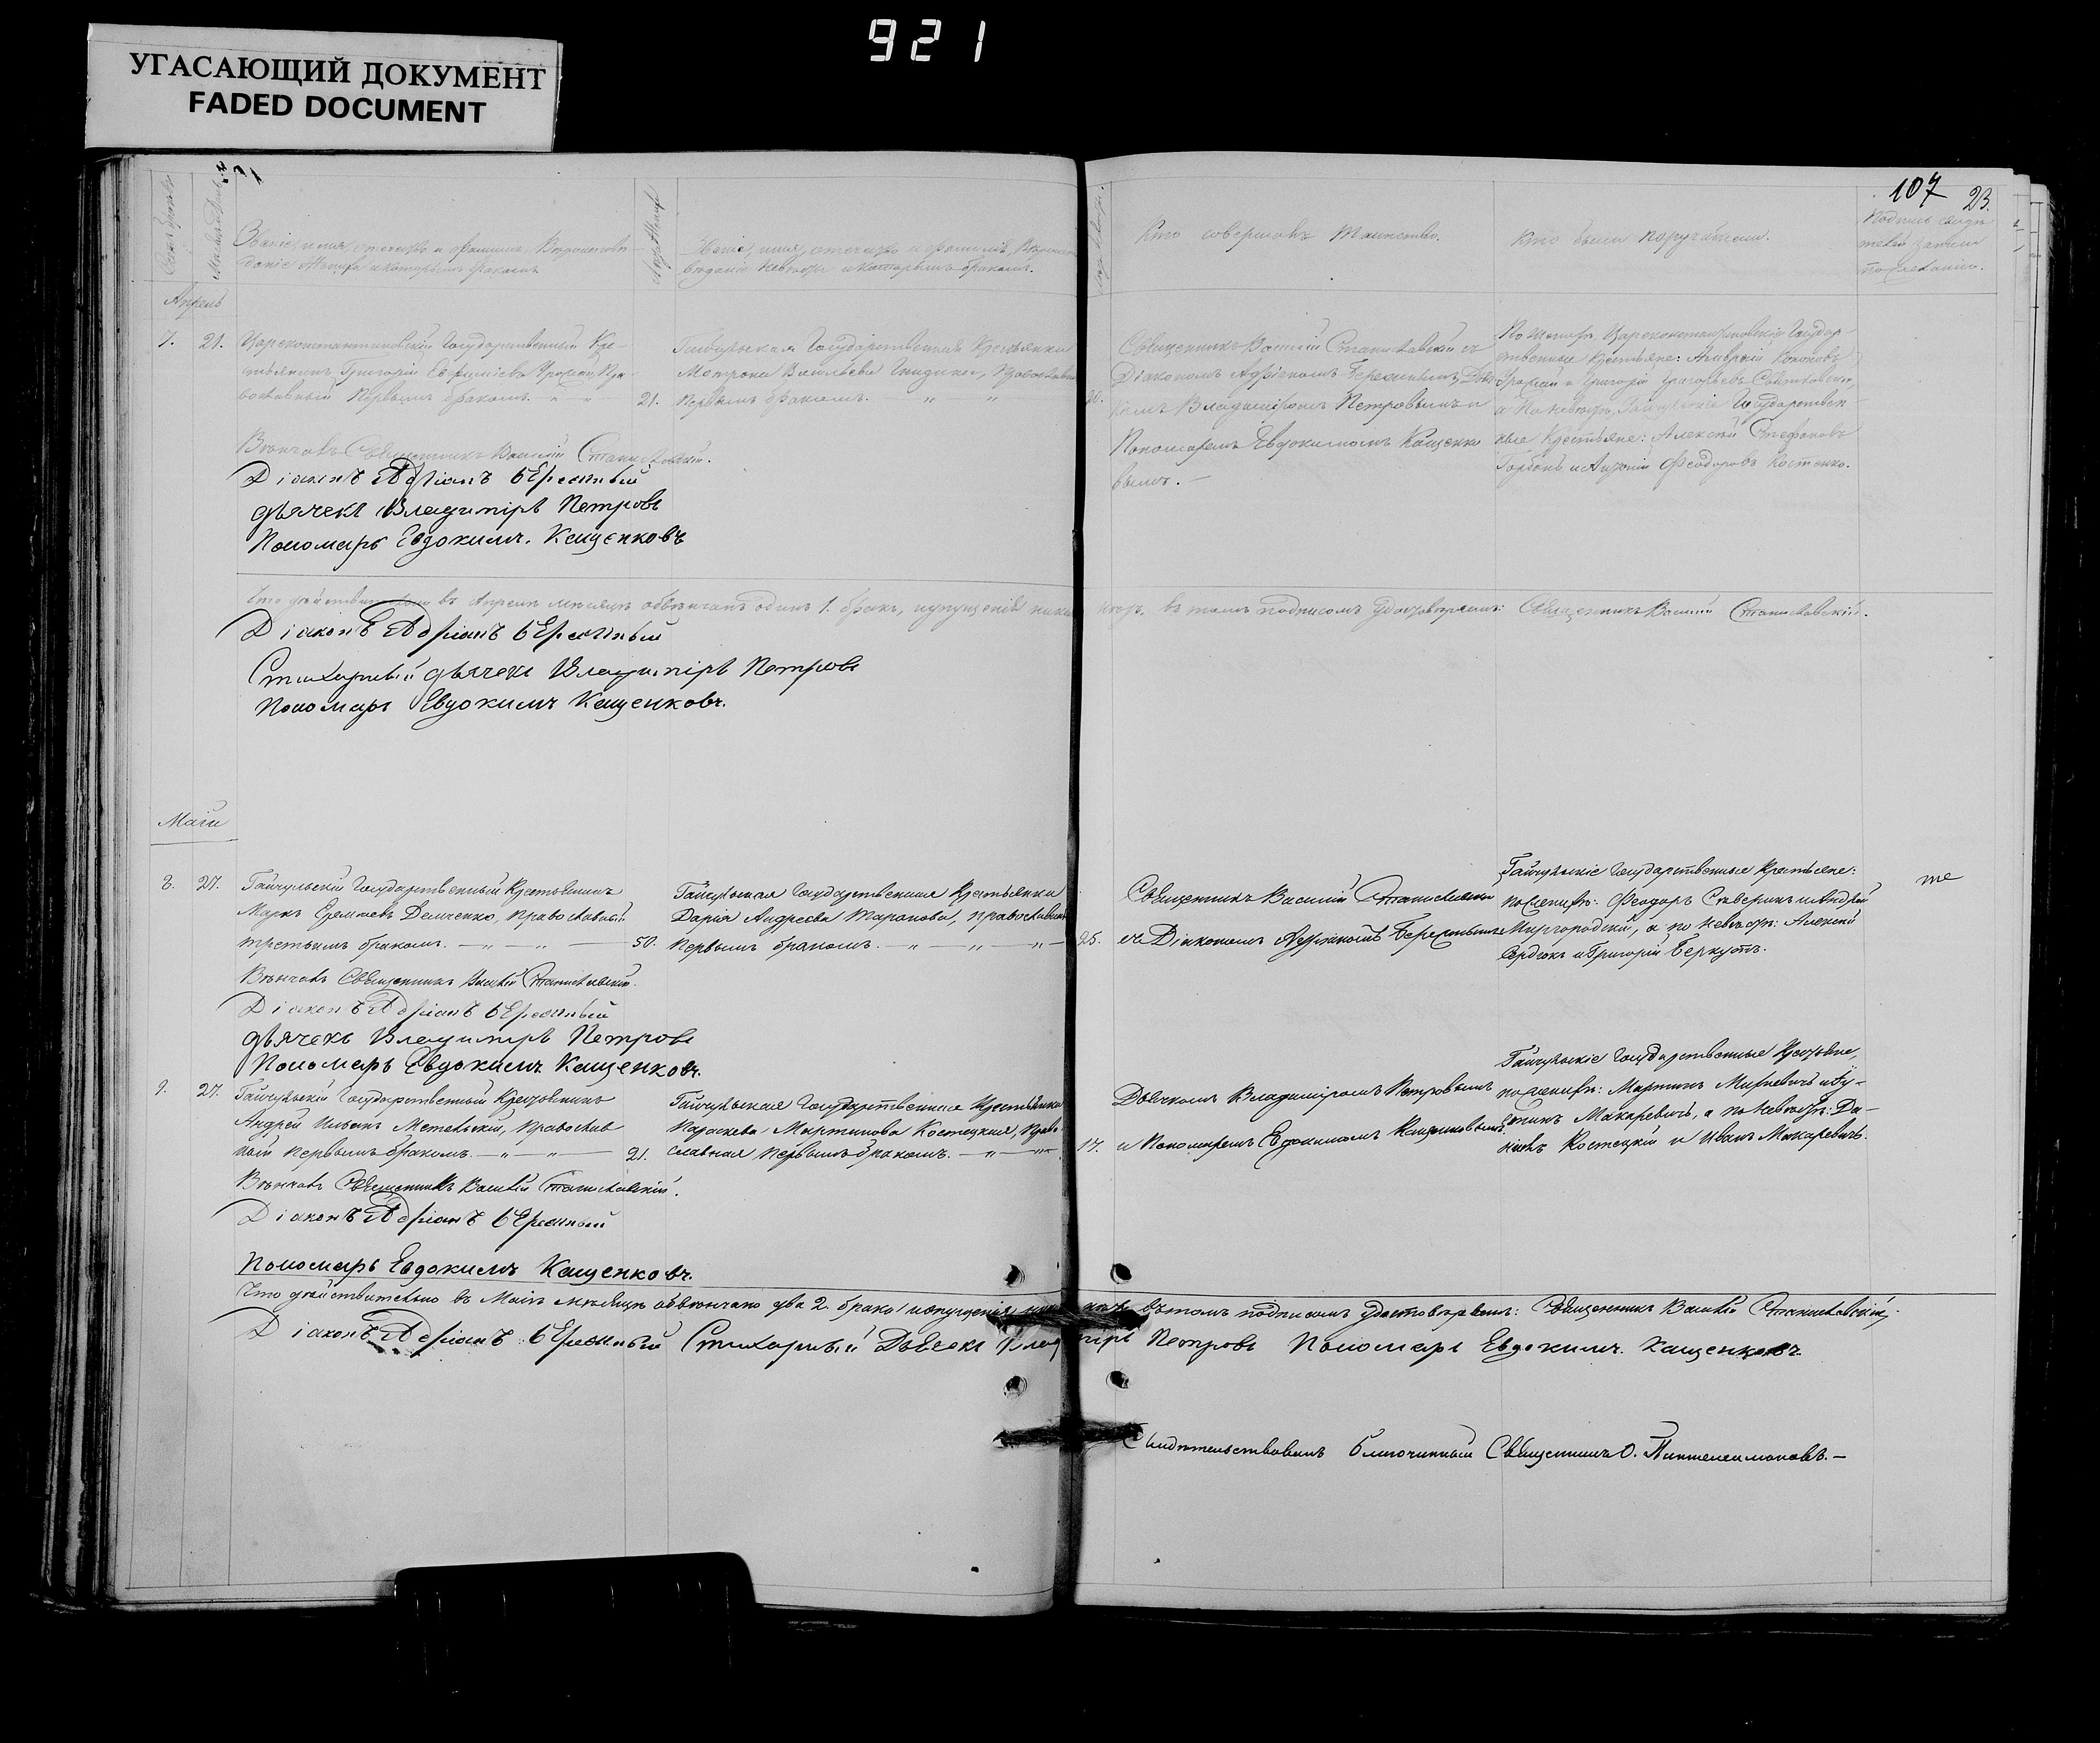 921
УГАСАЮЩИЙ ДОКУМЕНТ
FADED DOCUMENT
107 23.
Званіе, имя, отечество и фамилія, Вѣроисповѣ-
даніе Жениха и которымъ бракомъ
Званіе, имя, отечество и фамилія,
невѣсты и которымъ бракомъ.
Кто совершалъ Таинство.
Кто были поручители.
Апрель
7. 21.
Цареконстантиновскій Государственный Кре-
стьянинъ Григорій Пра-
вославный Первымъ бракомъ. 21.
Гайчульская Государственная Крестьянка
Матрона Васильева
Первымъ бракомъ. 20.
Священникъ Василій Станиславскій съ
Діакономъ Адріаномъ Бережнымъ,
Владиміромъ Петровымъ и
Пономаремъ Евдокимомъ Кащенко
вымъ. —
По Женихѣ Цареконстантиновскіе Государ-
ственные Крестьяне:
и Григорій Григорьевъ
а По невѣстѣ, Гайчульскіе Государствен-
ные Крестьяне: Алексѣй Стефановъ
Феодоровъ Костенко.
Вѣнчалъ Священникъ Василій Станиславскій.
Діаконъ Адріанъ Бережный
дьячекъ Владиміръ Петровъ
Пономарь Евдокимъ Кащенковъ
Что дѣйствительно въ Апрелѣ мѣсяцѣ обвѣнчанъ одинъ 1. бракъ, въ томъ подписомъ удостовѣряемъ: Священникъ Василій Станиславскій.
Діаконъ Адріанъ Бережный
Стихарный дьячекъ Владиміръ Петровъ
Пономарь Евдокимъ Кащенковъ.
Маій
8. 27.
Гайчульскій Государственный Крестьянинъ
Маркъ Демченко, православный
третьимъ бракомъ. 50.
Гайчульская Государственная Крестьянка
Дарія Андреева Таранова, православная
первымъ бракомъ. 25.
Священникъ Василій Станиславскій
съ Діакономъ Адріаномъ Бережнымъ
Гайчульскіе Государственные Крестьяне:
по Женихѣ: Феодоръ и Андрей
Миргородскій, а по невѣстѣ: Алексѣй
Сердюкъ и Григорій Беркутъ.
Вѣнчалъ Священникъ Василій Станиславскій.
Діаконъ Адріанъ Бережный
дьячекъ Владиміръ Петровъ
Пономарь Евдокимъ Кащенковъ.
9. 27.
Гайчульскій Государственный Крестьянинъ
Андрей Ильинъ Метельскій, Православ
ный первымъ бракомъ. 21.
Гайчульская Государственная Крестьянка
Параскева Мартинова Костецкая, Право-
славная первымъ бракомъ. 17.
Дьячкомъ Владиміромъ Петровымъ
и Пономаремъ Евдокимомъ Кащенковымъ.
Гайчульскіе Государственные Крестьяне,
по женихѣ: Мартинъ
Макаревичъ, а по невѣстѣ: Да-
Костецкій и Иванъ Макаревичъ.
Вѣнчалъ Священникъ Василій Станиславскій.
Діаконъ Адріанъ Бережный
Пономарь Евдокимъ Кащенковъ.
Что дѣйствительно въ Маіѣ мѣсяцѣ обвѣнчано два 2. брака въ томъ подписомъ удостовѣряемъ: Священникъ Василій Станиславскій
Діаконъ Адріанъ Бережный Стихарный Дьячекъ Владиміръ Петровъ Пономарь Евдокимъ Кащенковъ.
Свидѣтельствовалъ Благочинный Священникъ О. Пантелеимоновъ. —